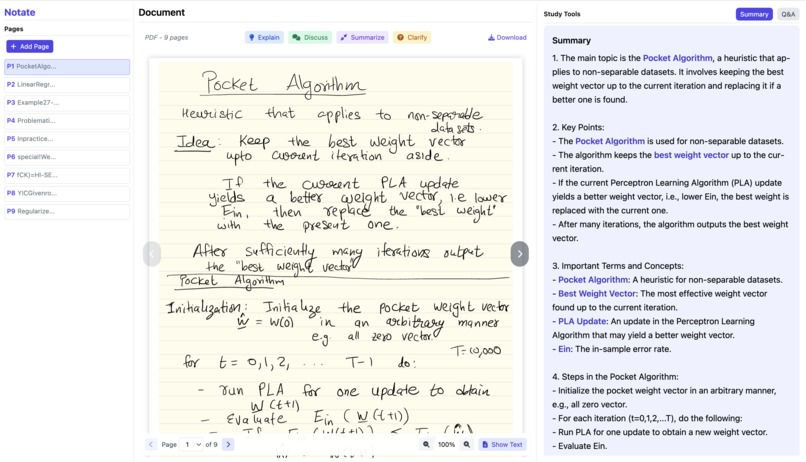 Notate
Pages
+ Add Page
P1 PocketAlgo...
P2 LinearRegr...
P3 Example27-...
P4 Problemati...
P5 Inpractice...
P6 special!We...
P7 f(X)=HI-SE...
P8 YICGivenro...
P9 Regularize...
Document
PDF - 9 pages
Explain
Discuss
Summarize
Clarify
Download
Pocket Algorithm
Heuristic that applies to non-separable
data sets.
Idea: Keep the best weight vector
upto current iteration aside.
If the current PLA update
yields a better weight vector, i.e lower
Ein, then replace the "best weight"
with the present one.
After sufficiently many iterations output
the "best weight vector"
Pocket Algorithm
Initialization: Initialize the pocket weight vector
ŵ = w(0) in an arbitrary manner
e.g. all zero vector.
T=10,000
for t = 0,1,2, ... T-1 do:
- run PLA for one update to obtain
w(t+1)
- Evaluate Ein (w(t+1))
Page 1 of 9
100%
Show Text
Study Tools
Summary
Q&A
Summary
1. The main topic is the Pocket Algorithm, a heuristic that ap-
plies to non-separable datasets. It involves keeping the best
weight vector up to the current iteration and replacing it if a
better one is found.
2. Key Points:
- The Pocket Algorithm is used for non-separable datasets.
- The algorithm keeps the best weight vector up to the cur-
rent iteration.
- If the current Perceptron Learning Algorithm (PLA) update
yields a better weight vector, i.e., lower Ein, the best weight is
replaced with the current one.
- After many iterations, the algorithm outputs the best weight
vector.
3. Important Terms and Concepts:
- Pocket Algorithm: A heuristic for non-separable datasets.
- Best Weight Vector: The most effective weight vector
found up to the current iteration.
- PLA Update: An update in the Perceptron Learning
Algorithm that may yield a better weight vector.
- Ein: The in-sample error rate.
4. Steps in the Pocket Algorithm:
- Initialize the pocket weight vector in an arbitrary manner,
e.g., all zero vector.
- For each iteration (t=0,1,2,...T), do the following:
- Run PLA for one update to obtain a new weight vector.
- Evaluate Ein.